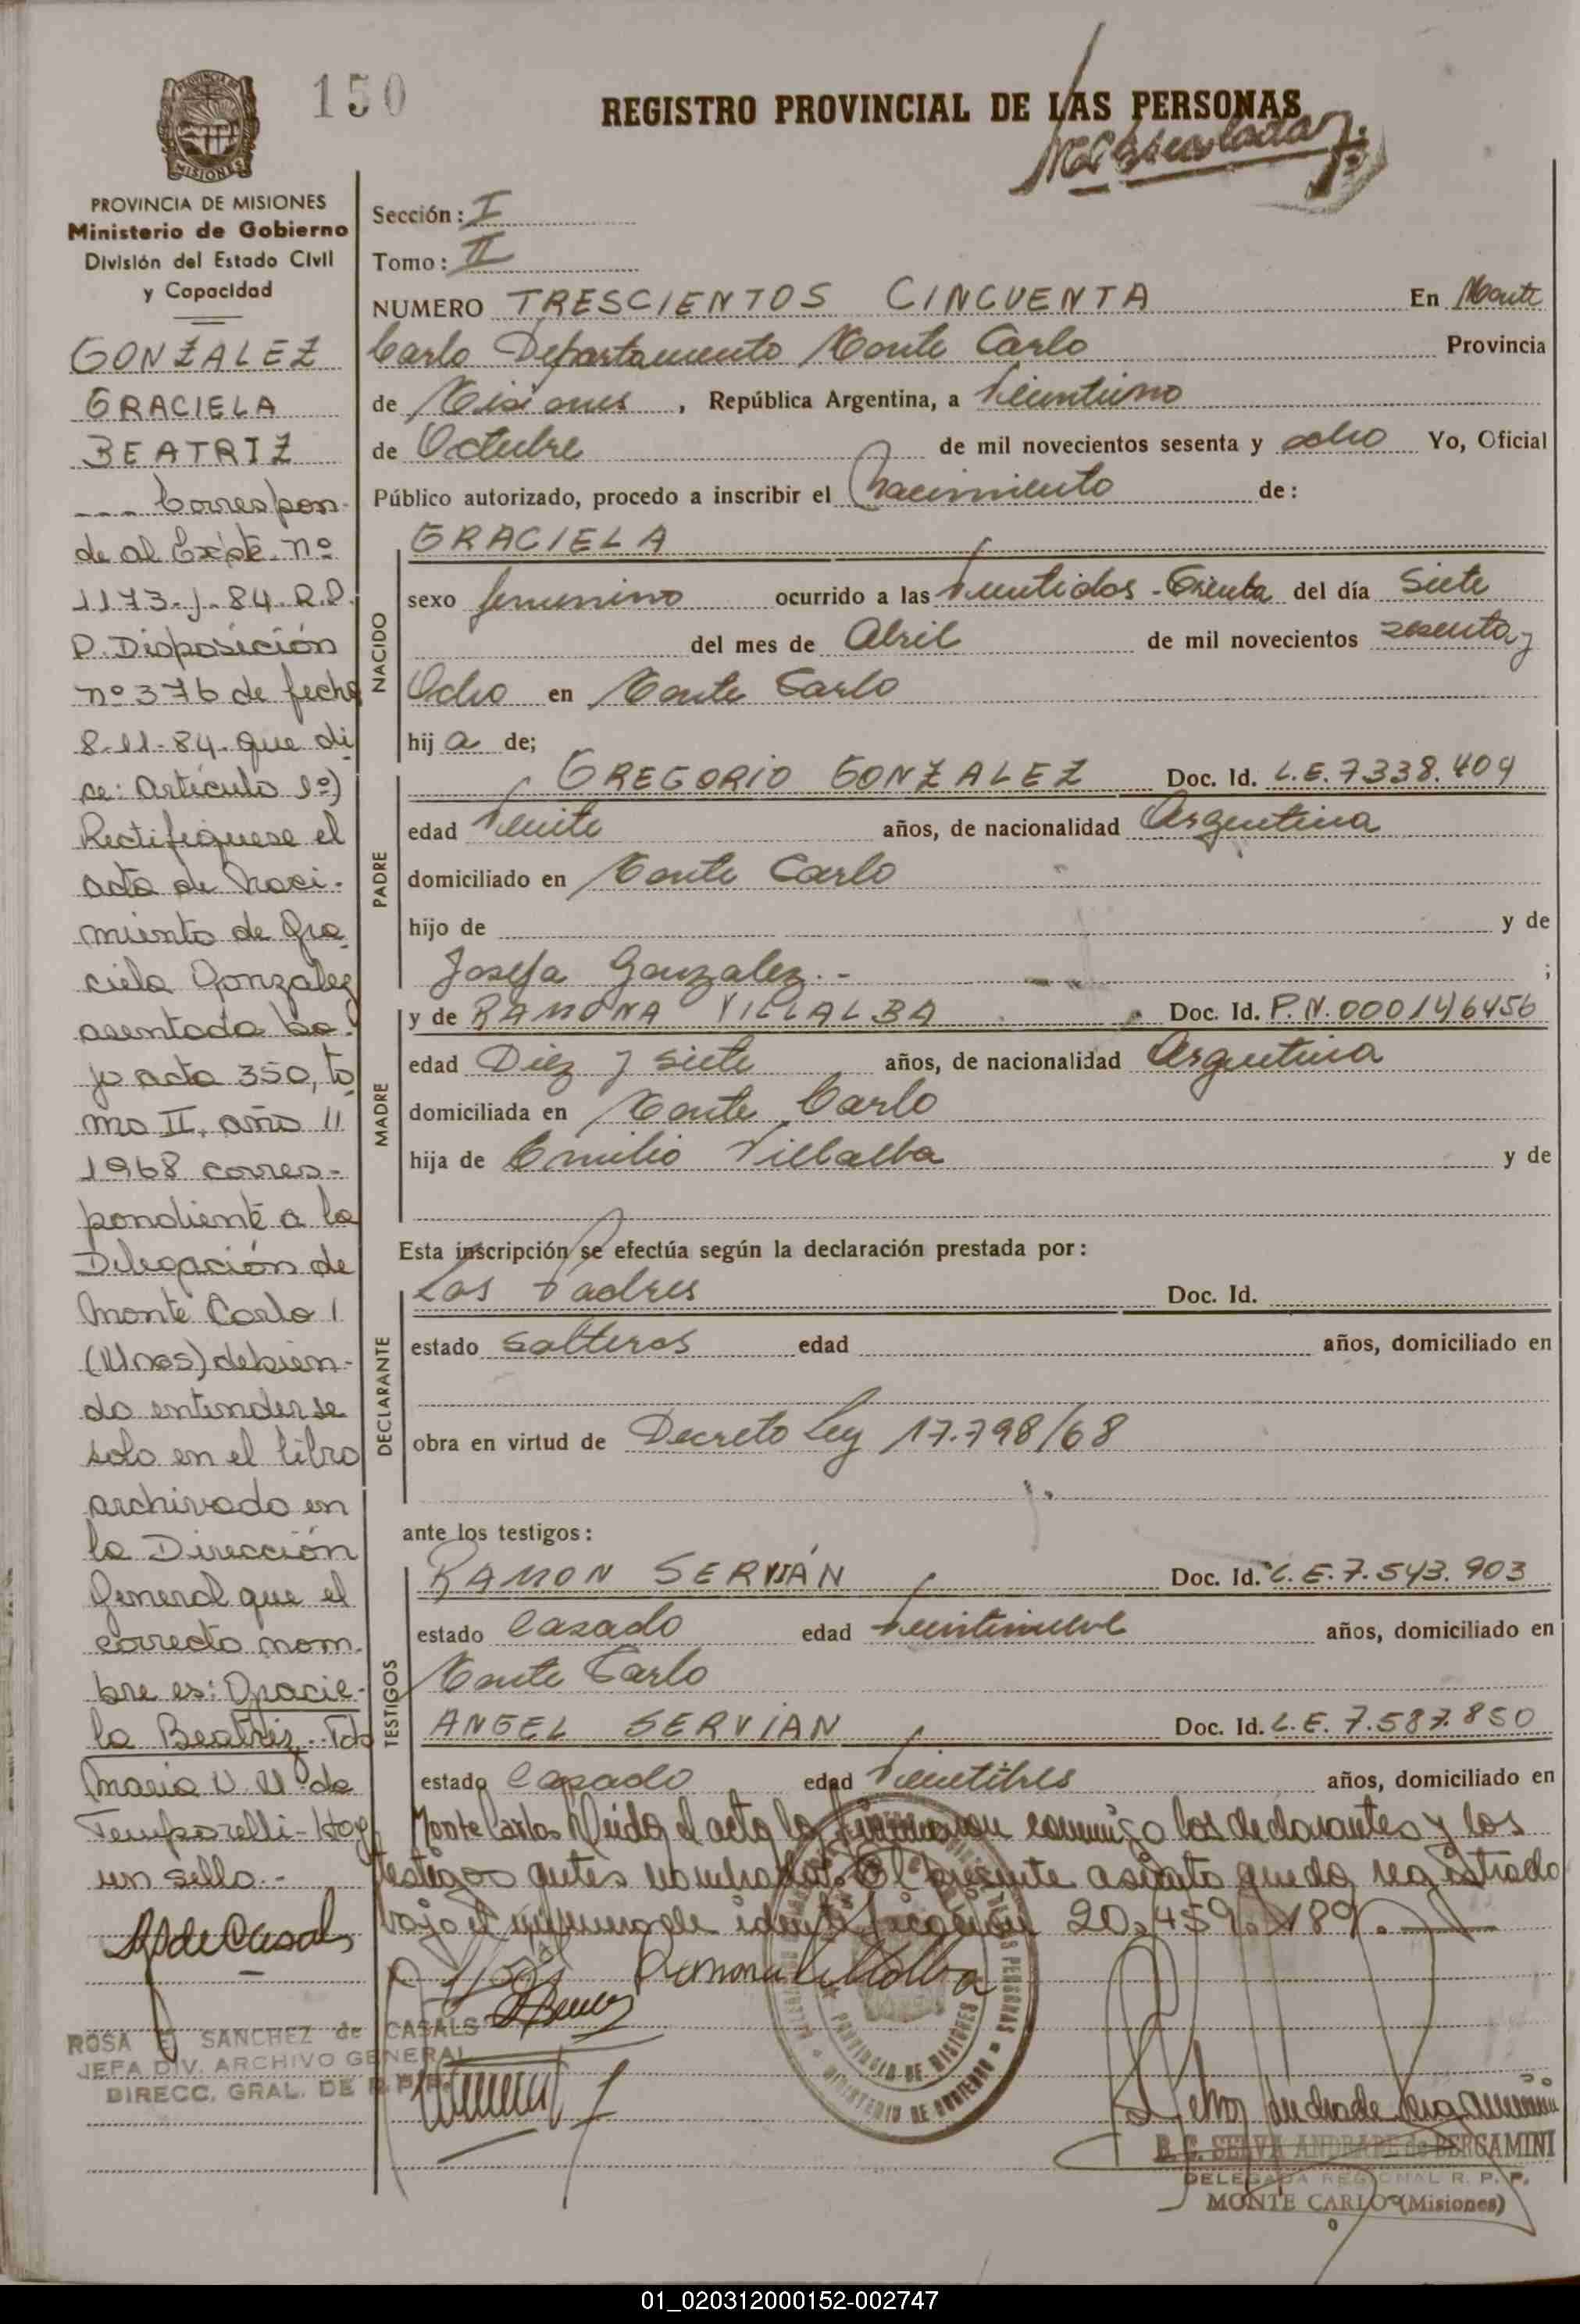 150
REGISTRO PROVINCIAL DE LAS PERSONAS
PROVINCIA DE MISIONES
Ministerio de Gobierno
División del Estado Civil
y Capacidad
GONZALEZ
GRACIELA
BEATRIZ
--- Correspon-
de al Expte. nº
1173-J-84.R.P.
P. Disposición
nº 376 de fecha
8-11-84. que di
ce: Artículo 1º)
Rectifíquese el
acta de naci-
miento de Gra
ciela Gonzalez
asentada ba-
jo acta 350, to
mo II, año
1968 corres-
pondiente a la
Delegación de
Monte Carlo 1
(Unos) debien-
do entenderse
solo en el libro
archivado en
la Dirección
General que el
correcto nom-
bre es: Gracie-
la Beatriz. Fdo
Maria de
Temporelli- Hay
un sello.-
ROSA SANCHEZ de CASALS
JEFA DIV. ARCHIVO GENERAL
DIRECC. GRAL. DE R.P.P.
Sección: I
Tomo: II
NUMERO TRESCIENTOS CINCUENTA En Monte
Carlo Departamento Monte Carlo Provincia
de Misiones, República Argentina, a Veintiuno
de Octubre de mil novecientos sesenta y ocho Yo, Oficial
Público autorizado, procedo a inscribir el Nacimiento de:
NACIDO
GRACIELA
sexo femenino ocurrido a las Veintidos - Treinta del día Siete
del mes de Abril de mil novecientos sesenta y
Ocho en Monte Carlo
hija de;
PADRE
GREGORIO GONZALEZ Doc. Id. L.E.7.338.409
edad Veinte años, de nacionalidad Argentina
domiciliado en Monte Carlo
hijo de y de
Josefa Gonzalez.- ;
MADRE
y de RAMONA VILLALBA Doc. Id. P.N.000146456
edad Diez y siete años, de nacionalidad Argentina
domiciliada en Monte Carlo
hija de Emilio Villalba y de
Esta inscripción se efectúa según la declaración prestada por:
DECLARANTE
Los Padres Doc. Id.
estado Solteros edad años, domiciliado en
obra en virtud de Decreto Ley 17.798/68
ante los testigos:
TESTIGOS
RAMON SERVIÁN Doc. Id. L.E.7.543.903
estado Casado edad Veintinueve años, domiciliado en
Monte Carlo
ANGEL SERVIAN Doc. Id. L.E. 7.587.850
estado Casado edad Veintitres años, domiciliado en
Monte Carlo. Leída el acta la firmaron conmigo los declarantes y los
testigos antes nombrados. El presente asiento queda registrado
bajo el número de identificación 20.459.189.
Ramona Villalba
PROVINCIA DE MISIONES
MINISTERIO DE GOBIERNO
B. C. SELVA ANDRADE de BERGAMINI
DELEGADA REGIONAL R. P. P.
MONTE CARLO (Misiones)
01_020312000152-002747